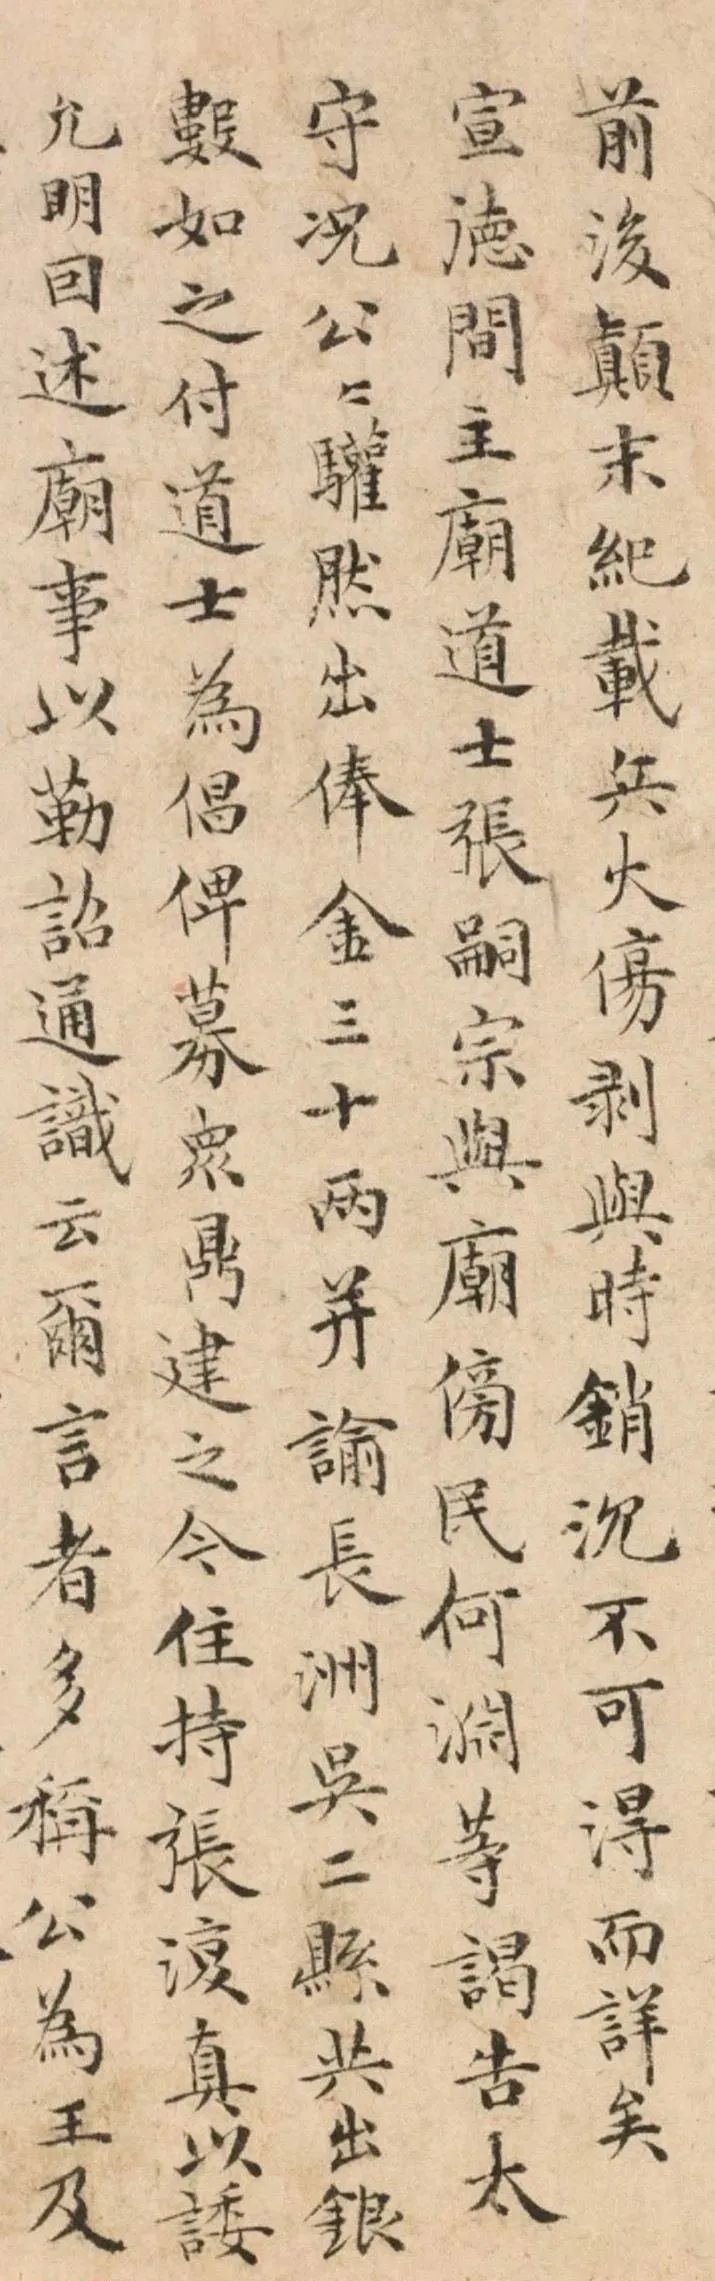 前後顛末紀載兵火傷剥與時銷沉不可得而詳矣
宣徳間主廟道士張嗣宗與廟傍民何淵等謁告太
守况公〻驩然出俸金三十兩并諭長洲吳二縣共出銀
數如之付道士為倡俾募衆鼎建之今住持張復真以諉
允明回述廟事以勒詔通識云爾言者多稱公為王及